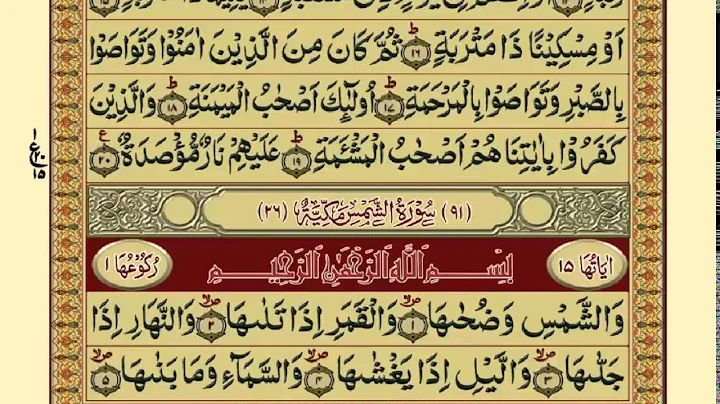 اَوْ مِسْكِيْنًا ذَا مَتْرَبَةٍ ؕ ﴿۱۶﴾ ثُمَّ كَانَ مِنَ الَّذِيْنَ اٰمَنُوْا وَتَوَاصَوْا
بِالصَّبْرِ وَتَوَاصَوْا بِالْمَرْحَمَةِ ؕ ﴿۱۷﴾ اُولٰٓئِكَ اَصْحٰبُ الْمَيْمَنَةِ ؕ ﴿۱۸﴾ وَالَّذِيْنَ
كَفَرُوْا بِاٰيٰتِنَا هُمْ اَصْحٰبُ الْمَشْـَٔمَةِ ؕ ﴿۱۹﴾ عَلَيْهِمْ نَارٌ مُّؤْصَدَةٌ ﴿۲۰﴾ ع
۱ ع ۲۰ ۱۵
(۹۱) سُوْرَةُ الشَّمْسِ مَكِّيَّةٌ (۲۶)
اٰيَاتُهَا ۱۵ بِسْمِ اللّٰهِ الرَّحْمٰنِ الرَّحِيْمِ رُكُوْعُهَا ۱
وَالشَّمْسِ وَضُحٰىهَا ۪ۙ ﴿۱﴾ وَالْقَمَرِ اِذَا تَلٰىهَا ۪ۙ ﴿۲﴾ وَالنَّهَارِ اِذَا
جَلّٰىهَا ۪ۙ ﴿۳﴾ وَالَّيْلِ اِذَا يَغْشٰىهَا ۪ۙ ﴿۴﴾ وَالسَّمَآءِ وَمَا بَنٰىهَا ۪ۙ ﴿۵﴾